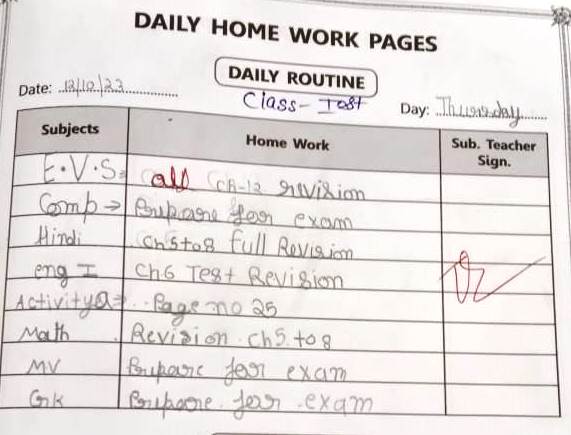 DAILY HOME WORK PAGES
DAILY ROUTINE
Date: 12/10/23
Class- Test
Day: Thursday
Subjects Home Work Sub. Teacher Sign.
E.V.S all Ch-12 revision
Comp → Prepare for exam
Hindi Ch 5 to 8 full Revision
eng I Ch 6 Test Revision
Activity Page no 25
Math Revision Ch 5 to 8
MV Prepare for exam
Gk Prepare for exam